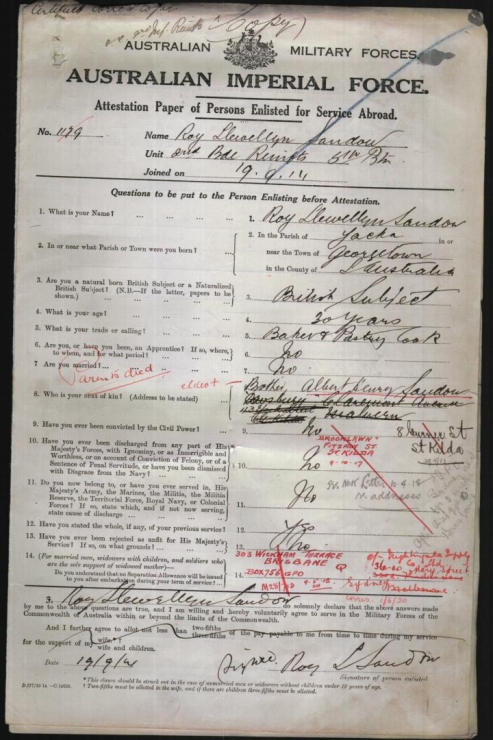 Copy)
AUSTRALIAN MILITARY FORCES.
AUSTRALIAN IMPERIAL FORCE.
Attestation Paper of Persons Enlisted for Service Abroad.
No. 1129 Name Roy Llewellyn Sandow
Unit 2nd Bde Reinfts 5th Btn
Joined on 19.9.14
Questions to be put to the Person Enlisting before Attestation.
1. What is your Name? ... ... ... 1. Roy Llewellyn Sandow
2. In or near what Parish or Town were you born? ... 2. In the Parish of Yacka in or
near the Town of Georgetown
in the County of S Australia
3. Are you a natural born British Subject or a Naturalized
British Subject? (N.B.—If the latter, papers to be
shown.) 3. British Subject
4. What is your age? 4. 30 Years
5. What is your trade or calling? 5. Baker & Pastry Cook
6. Are you, or have you been, an Apprentice? If so, where,
to whom, and for what period? 6. No
7. Are you married? 7. No
Parents died
eldest Brother, Albert Henry Sandow
8. Who is your next of kin? (Address to be stated)
Malvern
8 Gurner St
St Kilda
9. Have you ever been convicted by the Civil Power? 9. No
"BROOKLAWN"
FITZROY ST
ST KILDA
9-10-17
10. Have you ever been discharged from any part of His
Majesty's Forces, with Ignominy, or as Incorrigible and
Worthless, or on account of Conviction of Felony, or of a
Sentence of Penal Servitude, or have you been dismissed
with Disgrace from the Navy? 10. No
11. Do you now belong to, or have you ever served in, His
Majesty's Army, the Marines, the Militia, the Militia
Reserve, the Territorial Force, Royal Navy, or Colonial
Forces? If so, state which, and if not now serving,
state cause of discharge 11. No
12. Have you stated the whole, if any, of your previous service? 12. Yes
13. Have you ever been rejected as unfit for His Majesty's
Service? If so, on what grounds? 13. No
14. (For married men, widowers with children, and soldiers who
are the sole support of widowed mother)—
Do you understand that no Separation Allowance will be issued
to you after embarkation during your term of service? 14.
303 WICKHAM TERRACE
BRISBANE Q
BOX 756 GPO
Sydney
I, Roy Llewellyn Sandow do solemnly declare that the above answers made
by me to the above questions are true, and I am willing and hereby voluntarily agree to serve in the Military Forces of the
Commonwealth of Australia within or beyond the limits of the Commonwealth.
And I further agree to allot not less than two-fifths
three-fifths of the pay payable to me from time to time during my service
for the support of my wife.*
wife and children.
Date 19/9/14 Signed Roy L Sandow
Signature of person enlisted.
* This clause should be struck out in the case of unmarried men or widowers without children under 18 years of age.
† Two-fifths must be allotted to the wife, and if there are children three-fifths must be allotted.